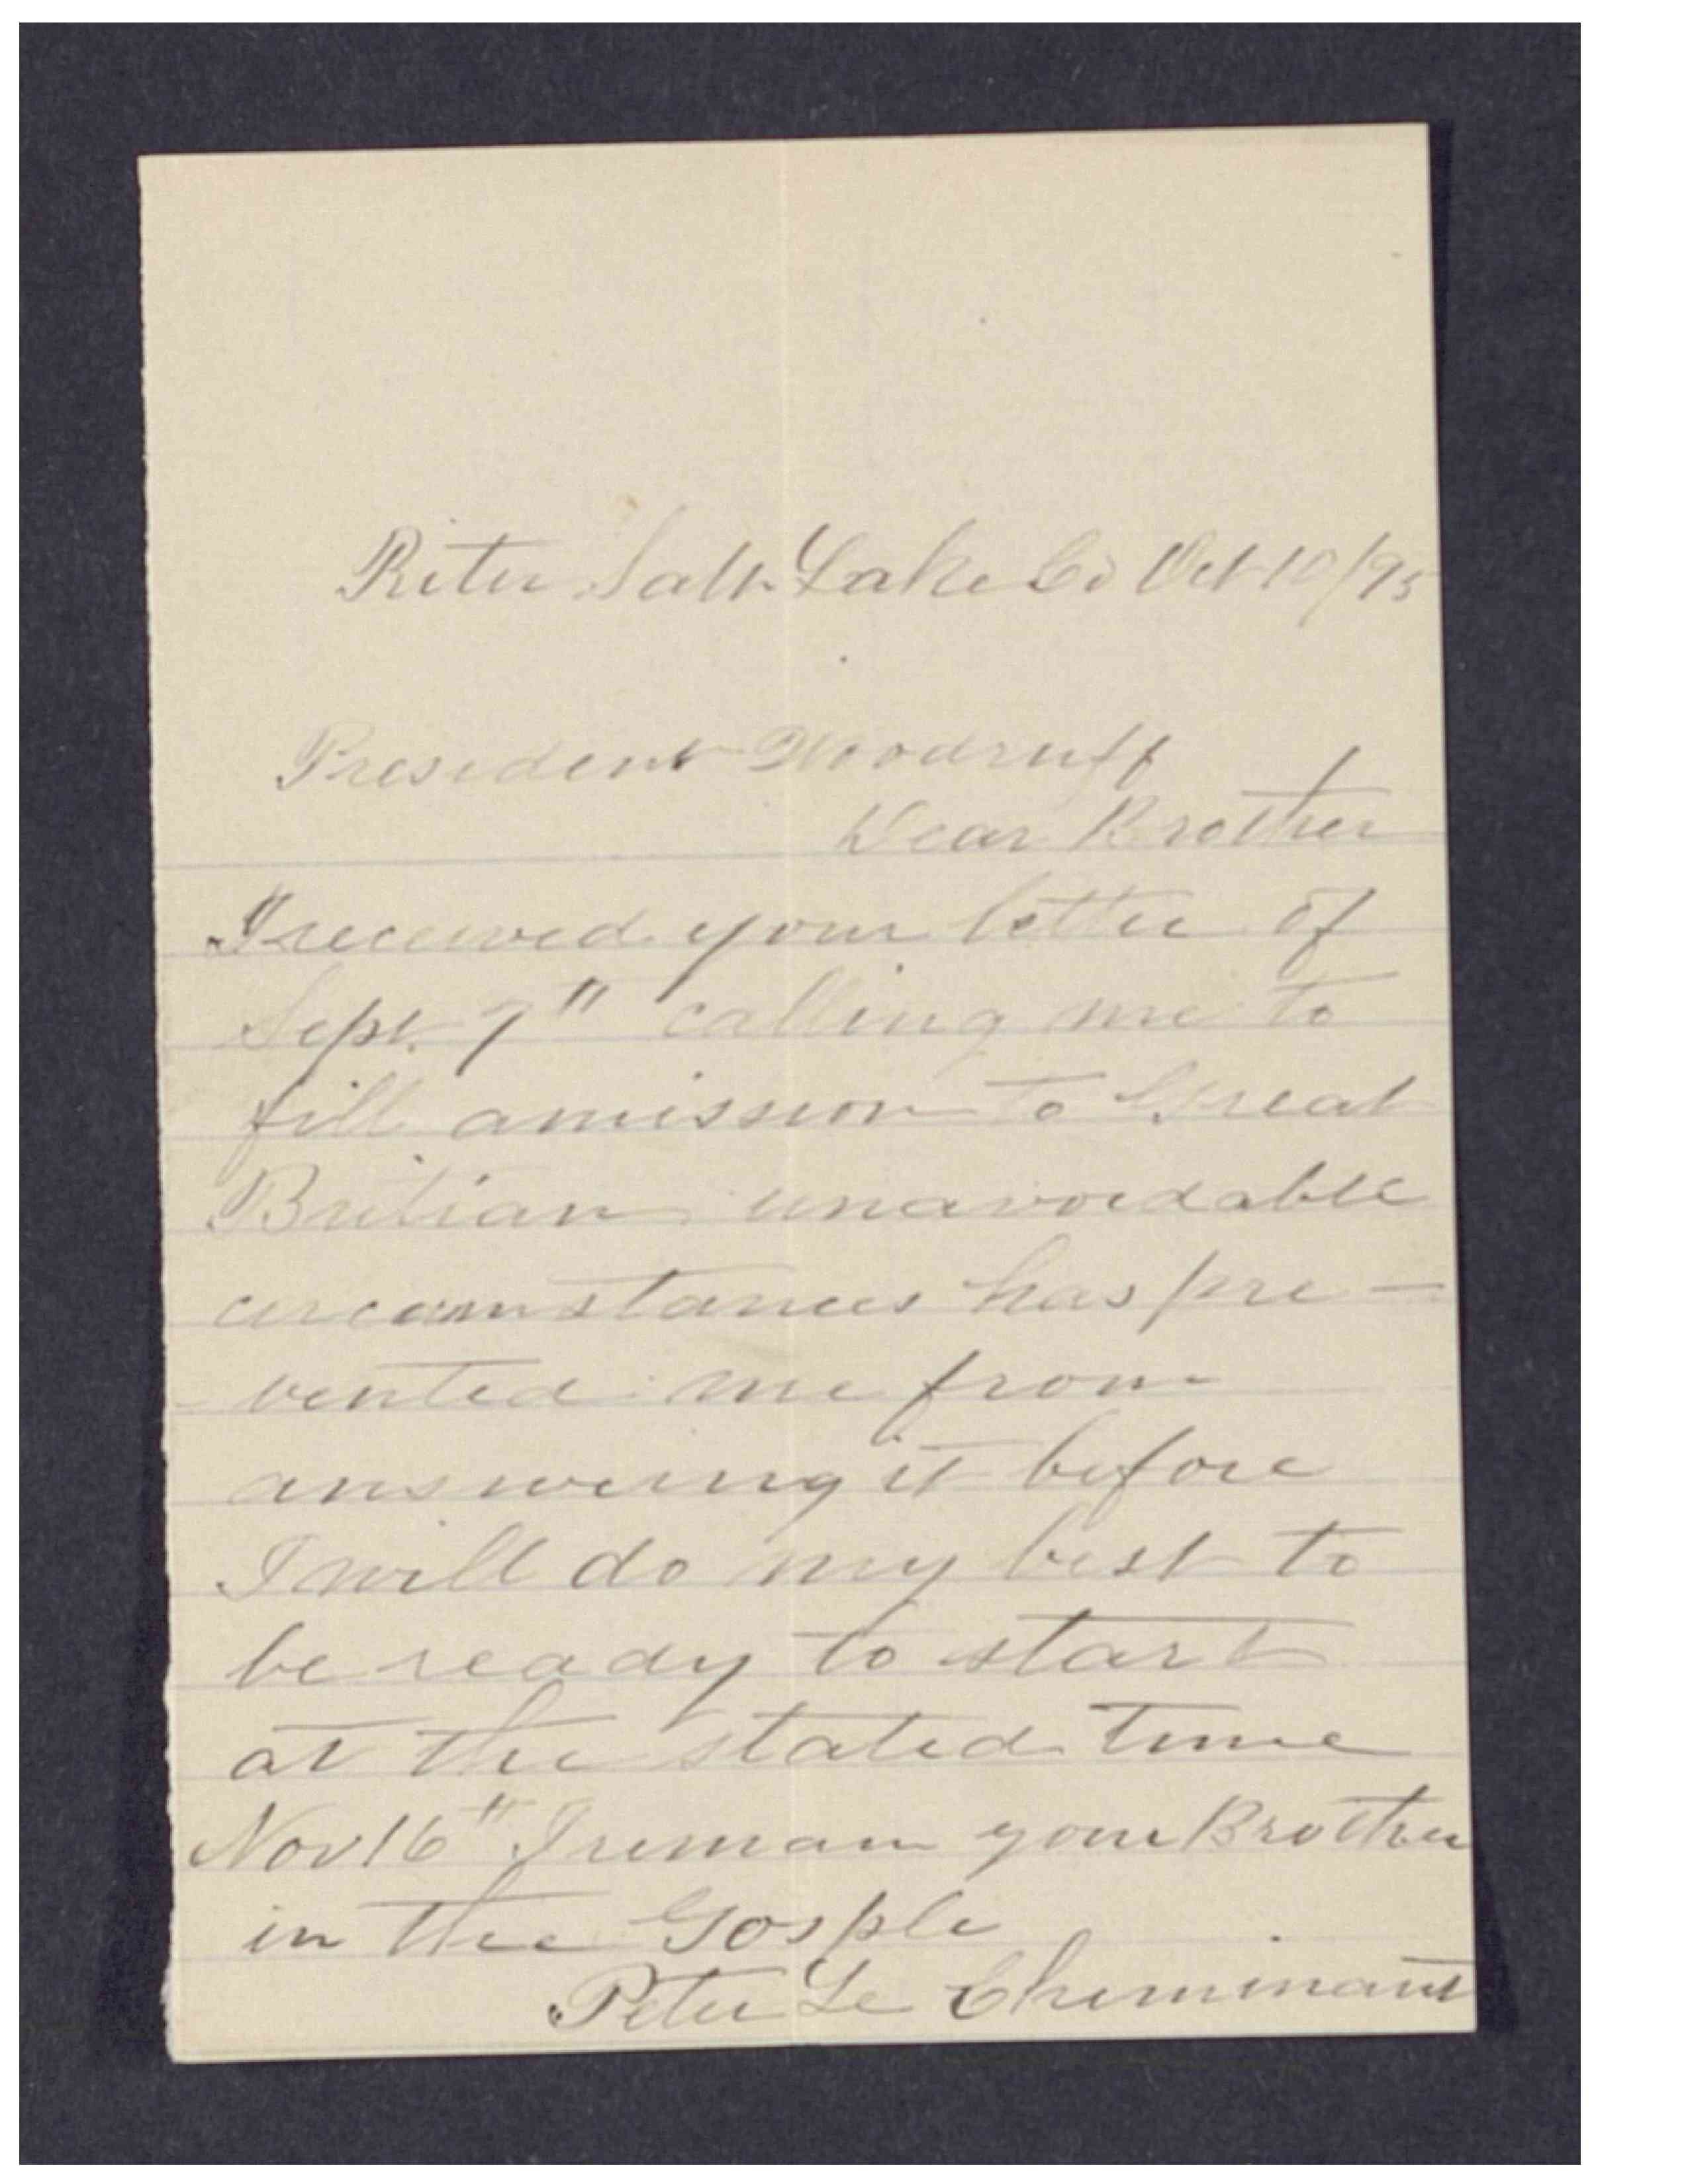 Riter Salt Lake Co Oct 10/95
President Woodruff
Dear Brother
I received your letter of
Sept. 7" calling me to
fill a mission to Great
Britian unavoidable
circumstances has pre-
vented me from
answering it before
I will do my best to
be ready to start
at the stated time
Nov 16" I remain your Brother
in the Gosple
Peter Le Cheminant